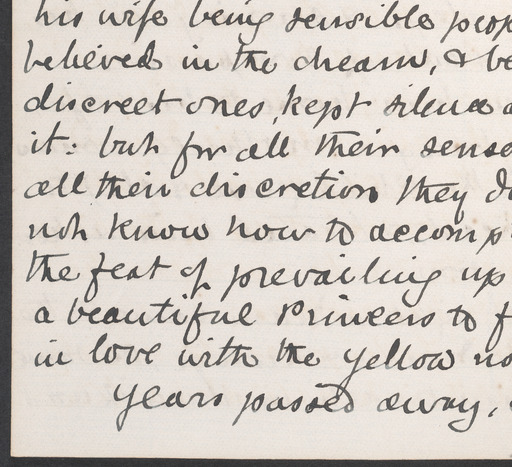 his wife being sensible peop
believed in the dream, & be
discreet ones, kept silence a
it: but for all their sense
all their discretion they d
not know how to accomp
the feat of prevailing up
a beautiful Princess to f
in love with the yellow no
Years passed away,